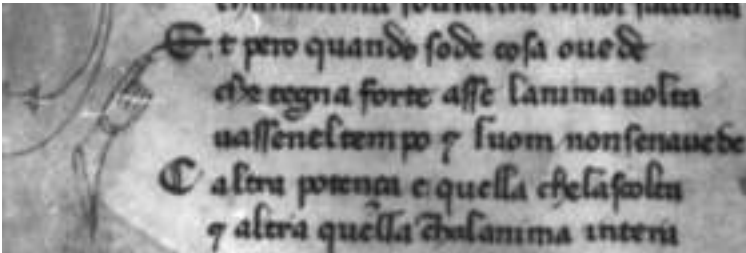 Et pero quando sode cosa ouede
che tegna forte asse lanima uolta
uasseneltempo ⁊ luom nonsenauede
C altra potença e quella chelascolta
⁊ altra quella chalanima intera